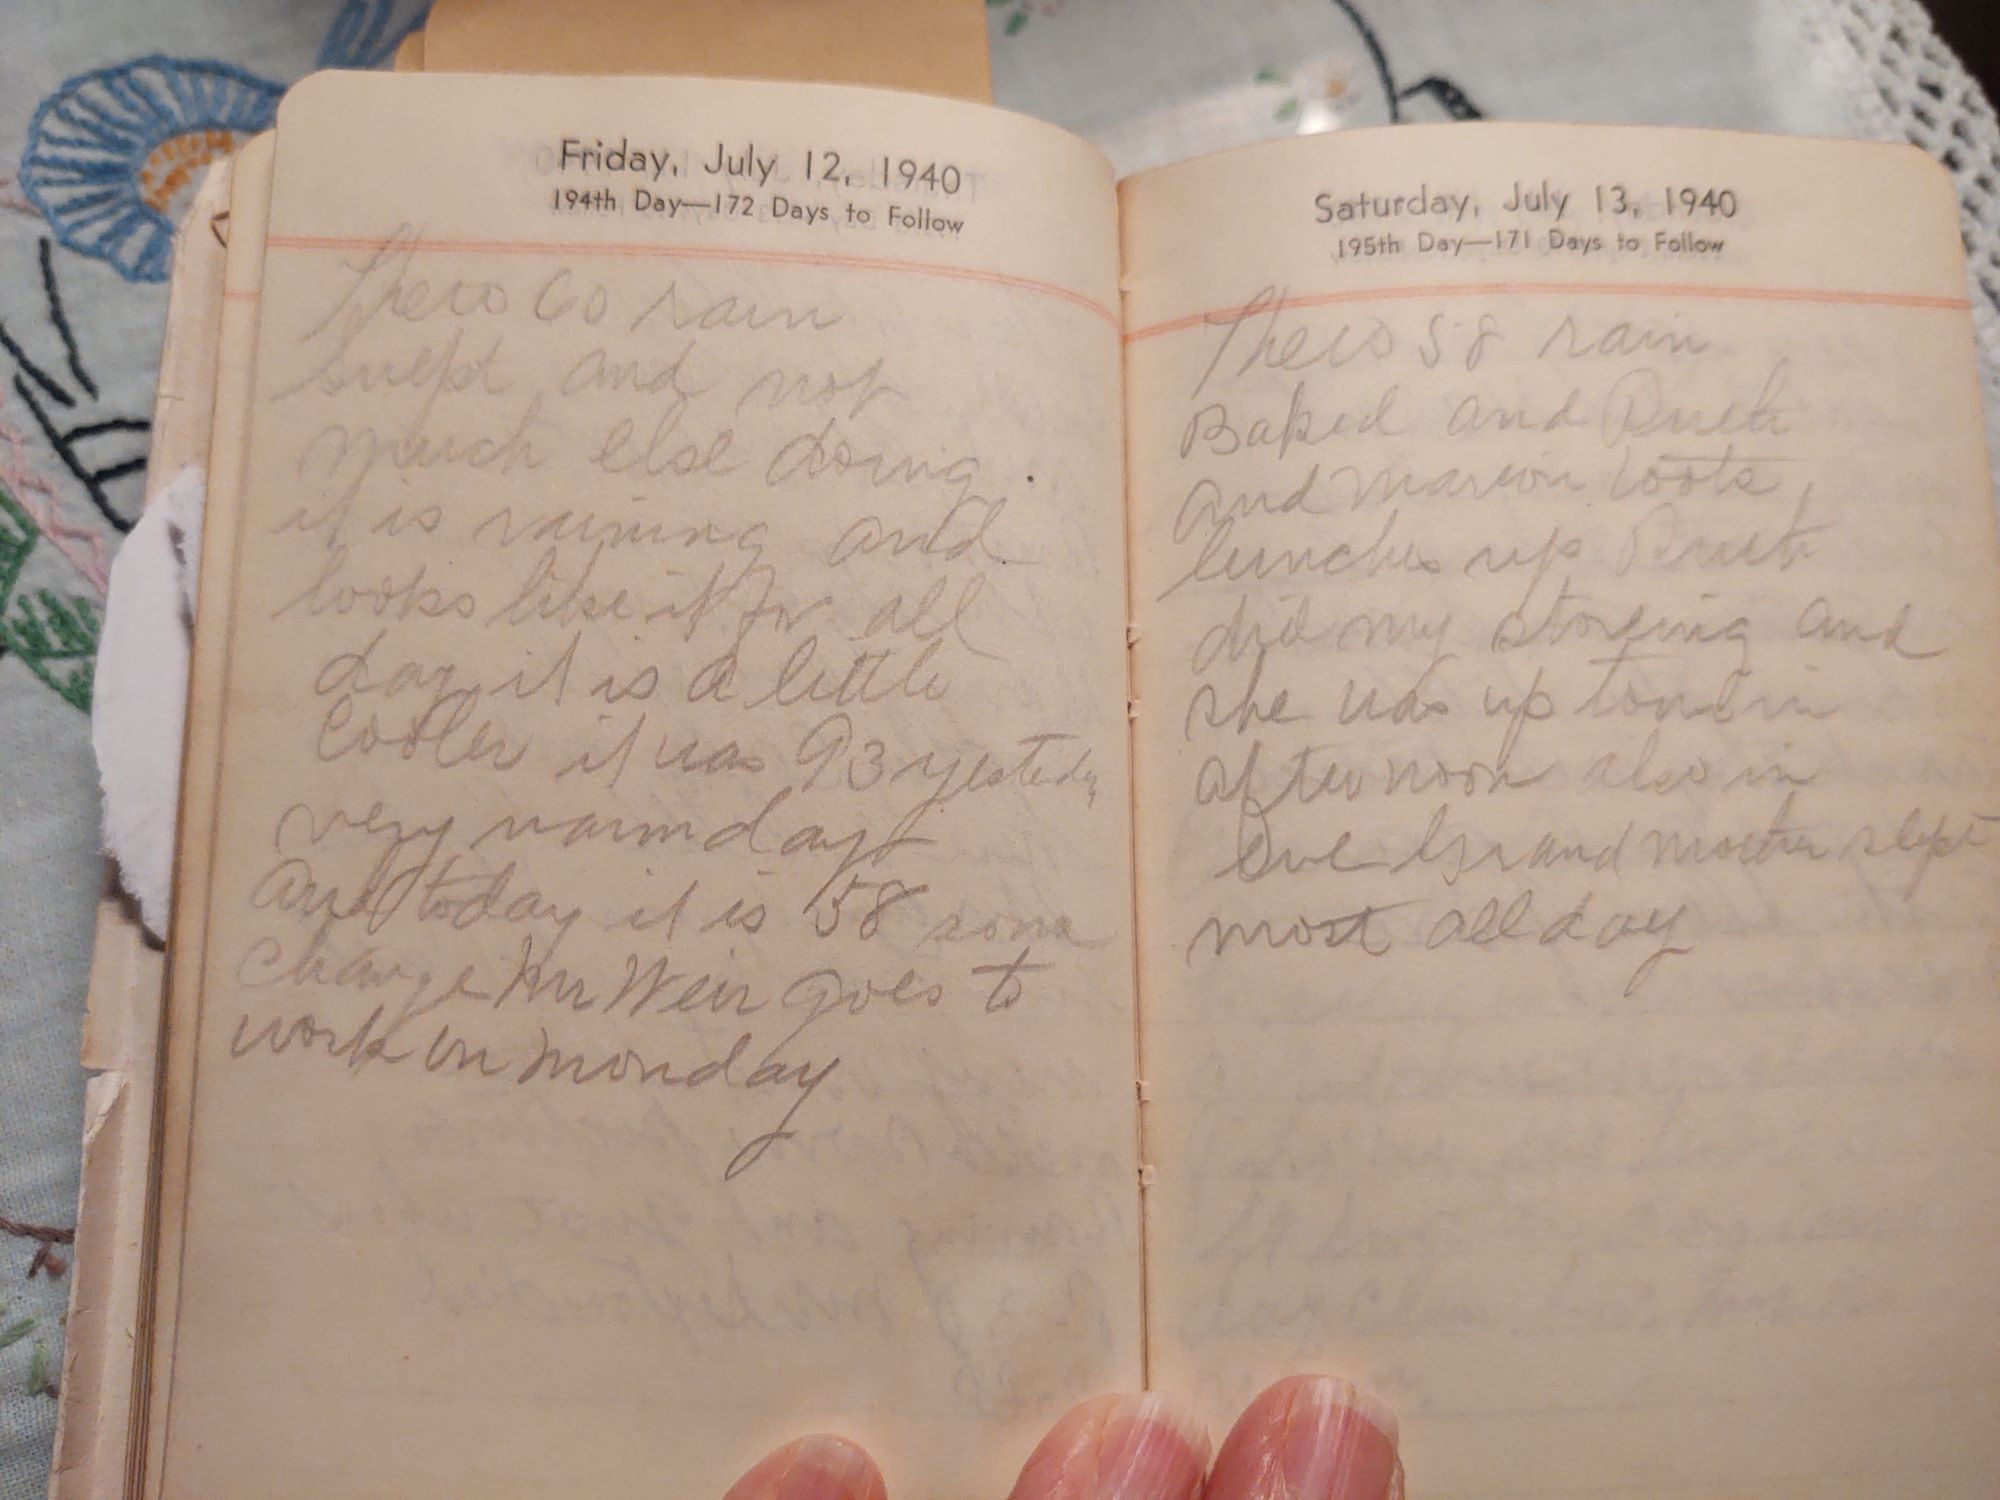 Friday, July 12, 1940
194th Day—172 Days to Follow
Thero 60 rain
swept and not
much else doing.
it is raining and
looks like it for all
day it is a little
cooler it was 93 yesterday
very warm day
and today it is 58 some
change Mr Weir goes to
work on monday
Saturday, July 13, 1940
195th Day—171 Days to Follow
Thero 58 rain
Baked and Ruth
and marion took
lunches up Ruth
did my storeing and
she was up town in
afternoon also in
Eve Grand mother slept
most all day